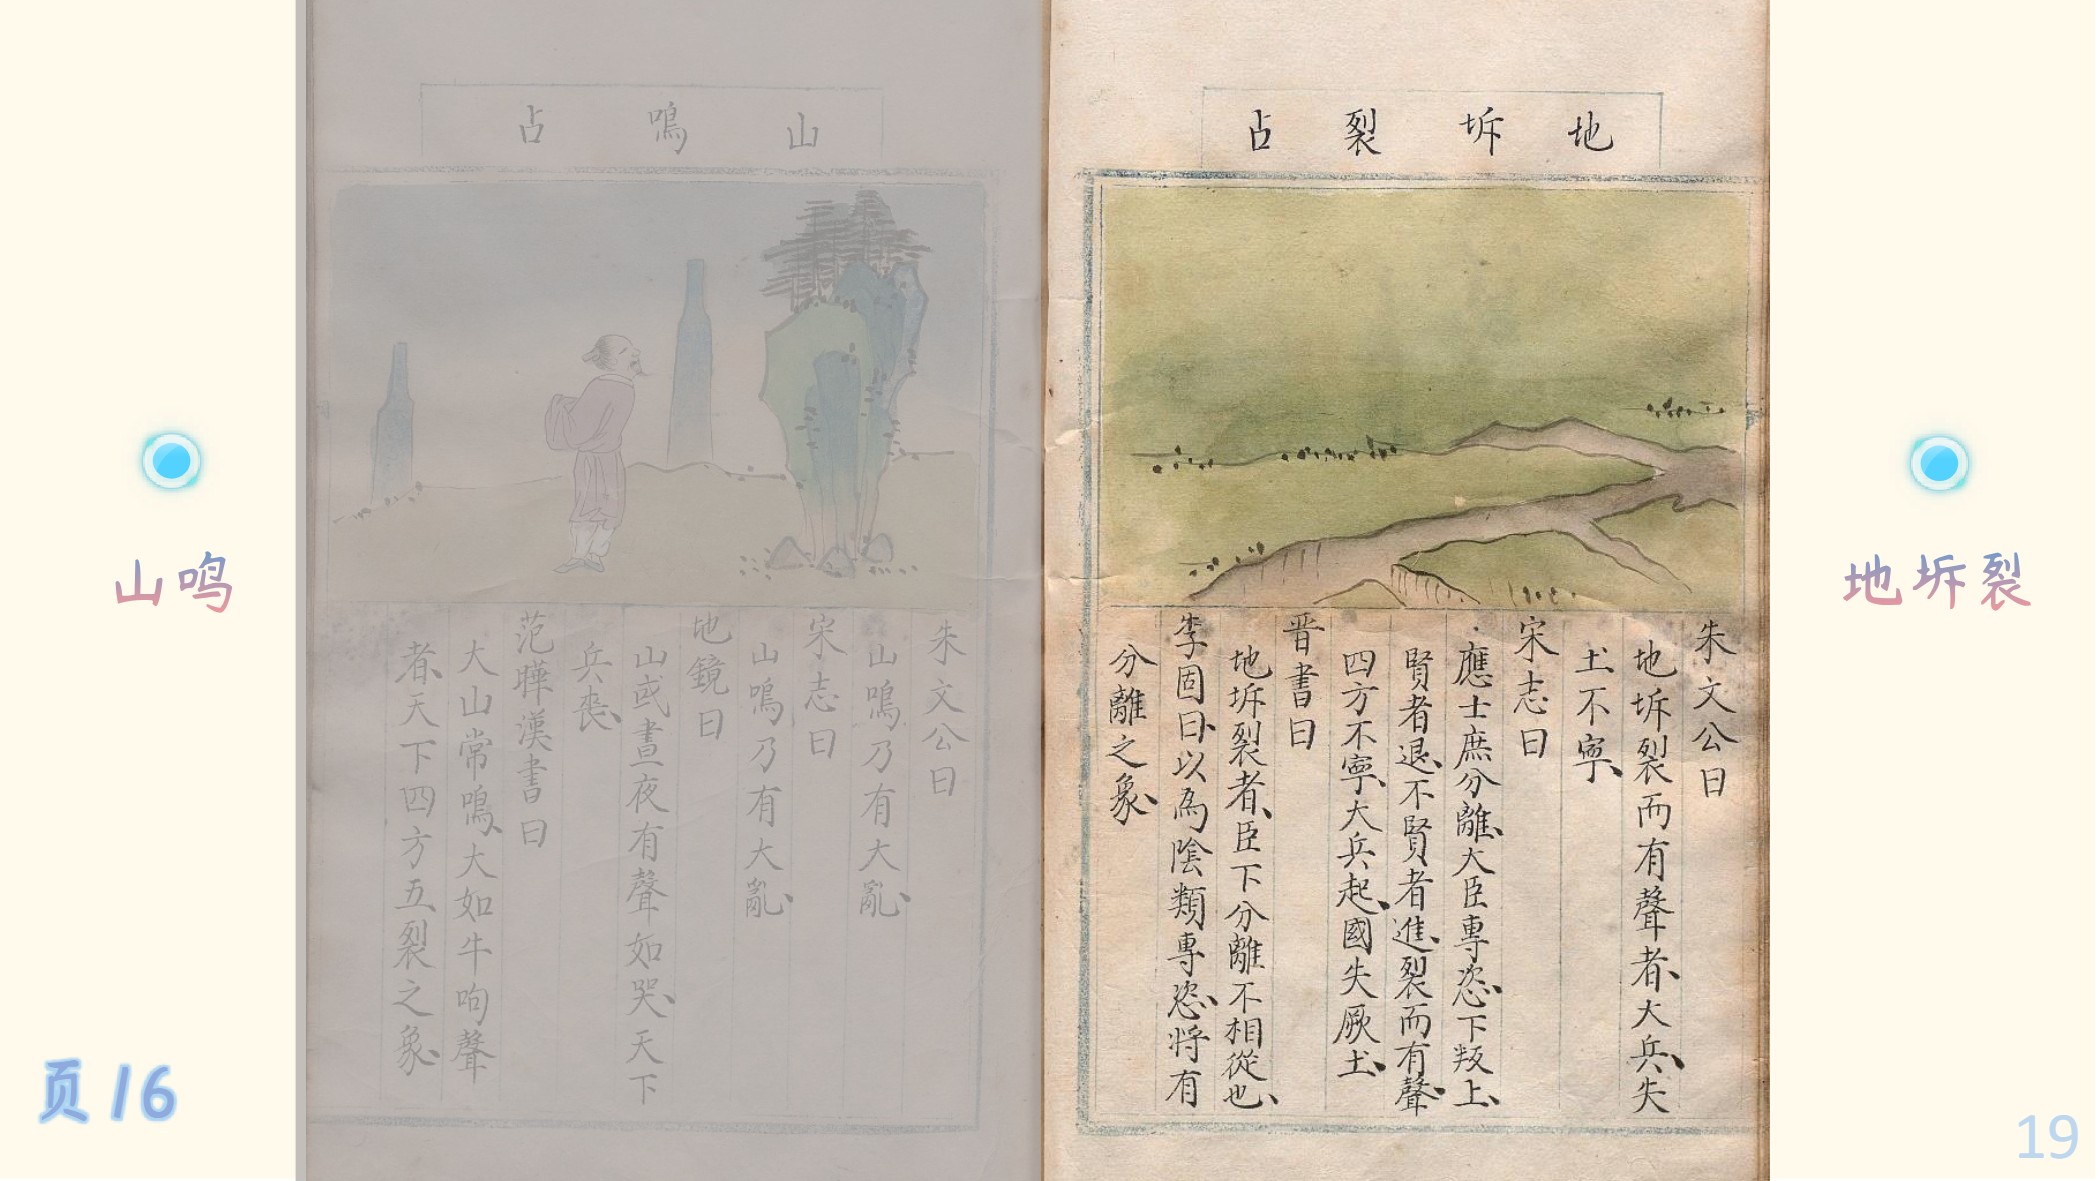 地坼裂占
朱文公曰
地坼裂而有聲者、大兵、失
土不寧、
宋志曰
應士庶分離、大臣專恣、下叛上、
賢者退、不賢者進、裂而有聲、
四方不寧、大兵起、國失厥土、
晋書曰
地坼裂者、臣下分離不相從也、
李固曰、以為陰類專恣、將有
分離之象、
山鳴占
朱文公曰
山鳴乃有大亂、
宋志曰
山鳴乃有大亂、
地鏡曰
山或晝夜有聲如哭、天下
兵喪、
范曄漢書曰
大山常鳴、大如牛呴聲
者、天下四方五裂之象、
山鸣
地坼裂
页16
19